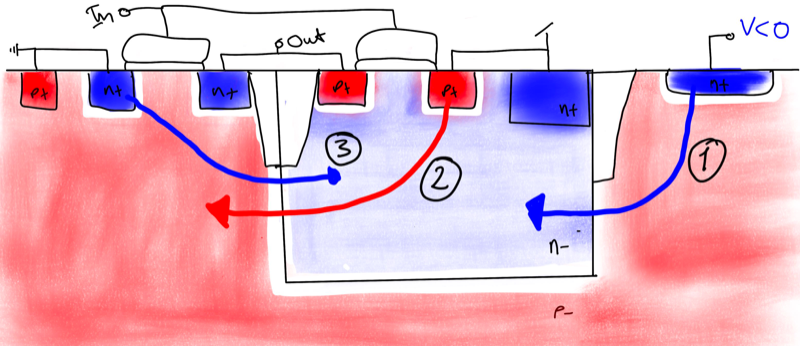 In
Out
V<0
p+
n+
n+
p+
p+
n+
n+
3
2
1
n-
p-